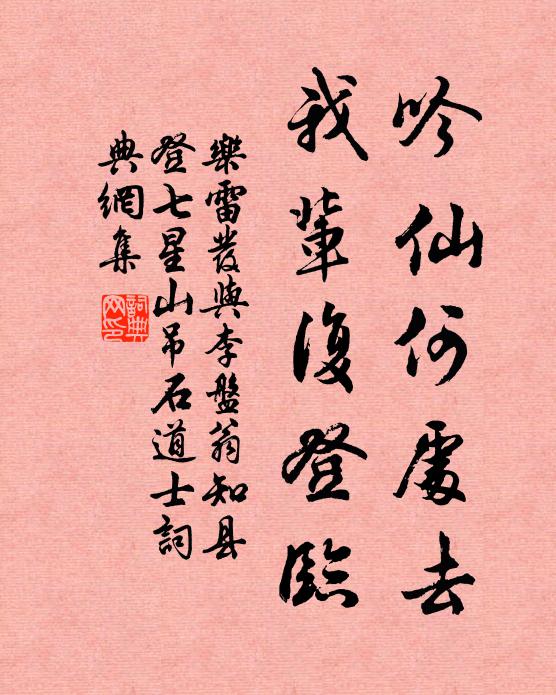 吟仙何處去
我輩復登臨
樂雷發與李盤翁知县
登七星山吊石道士詞
典網集
詞典网印